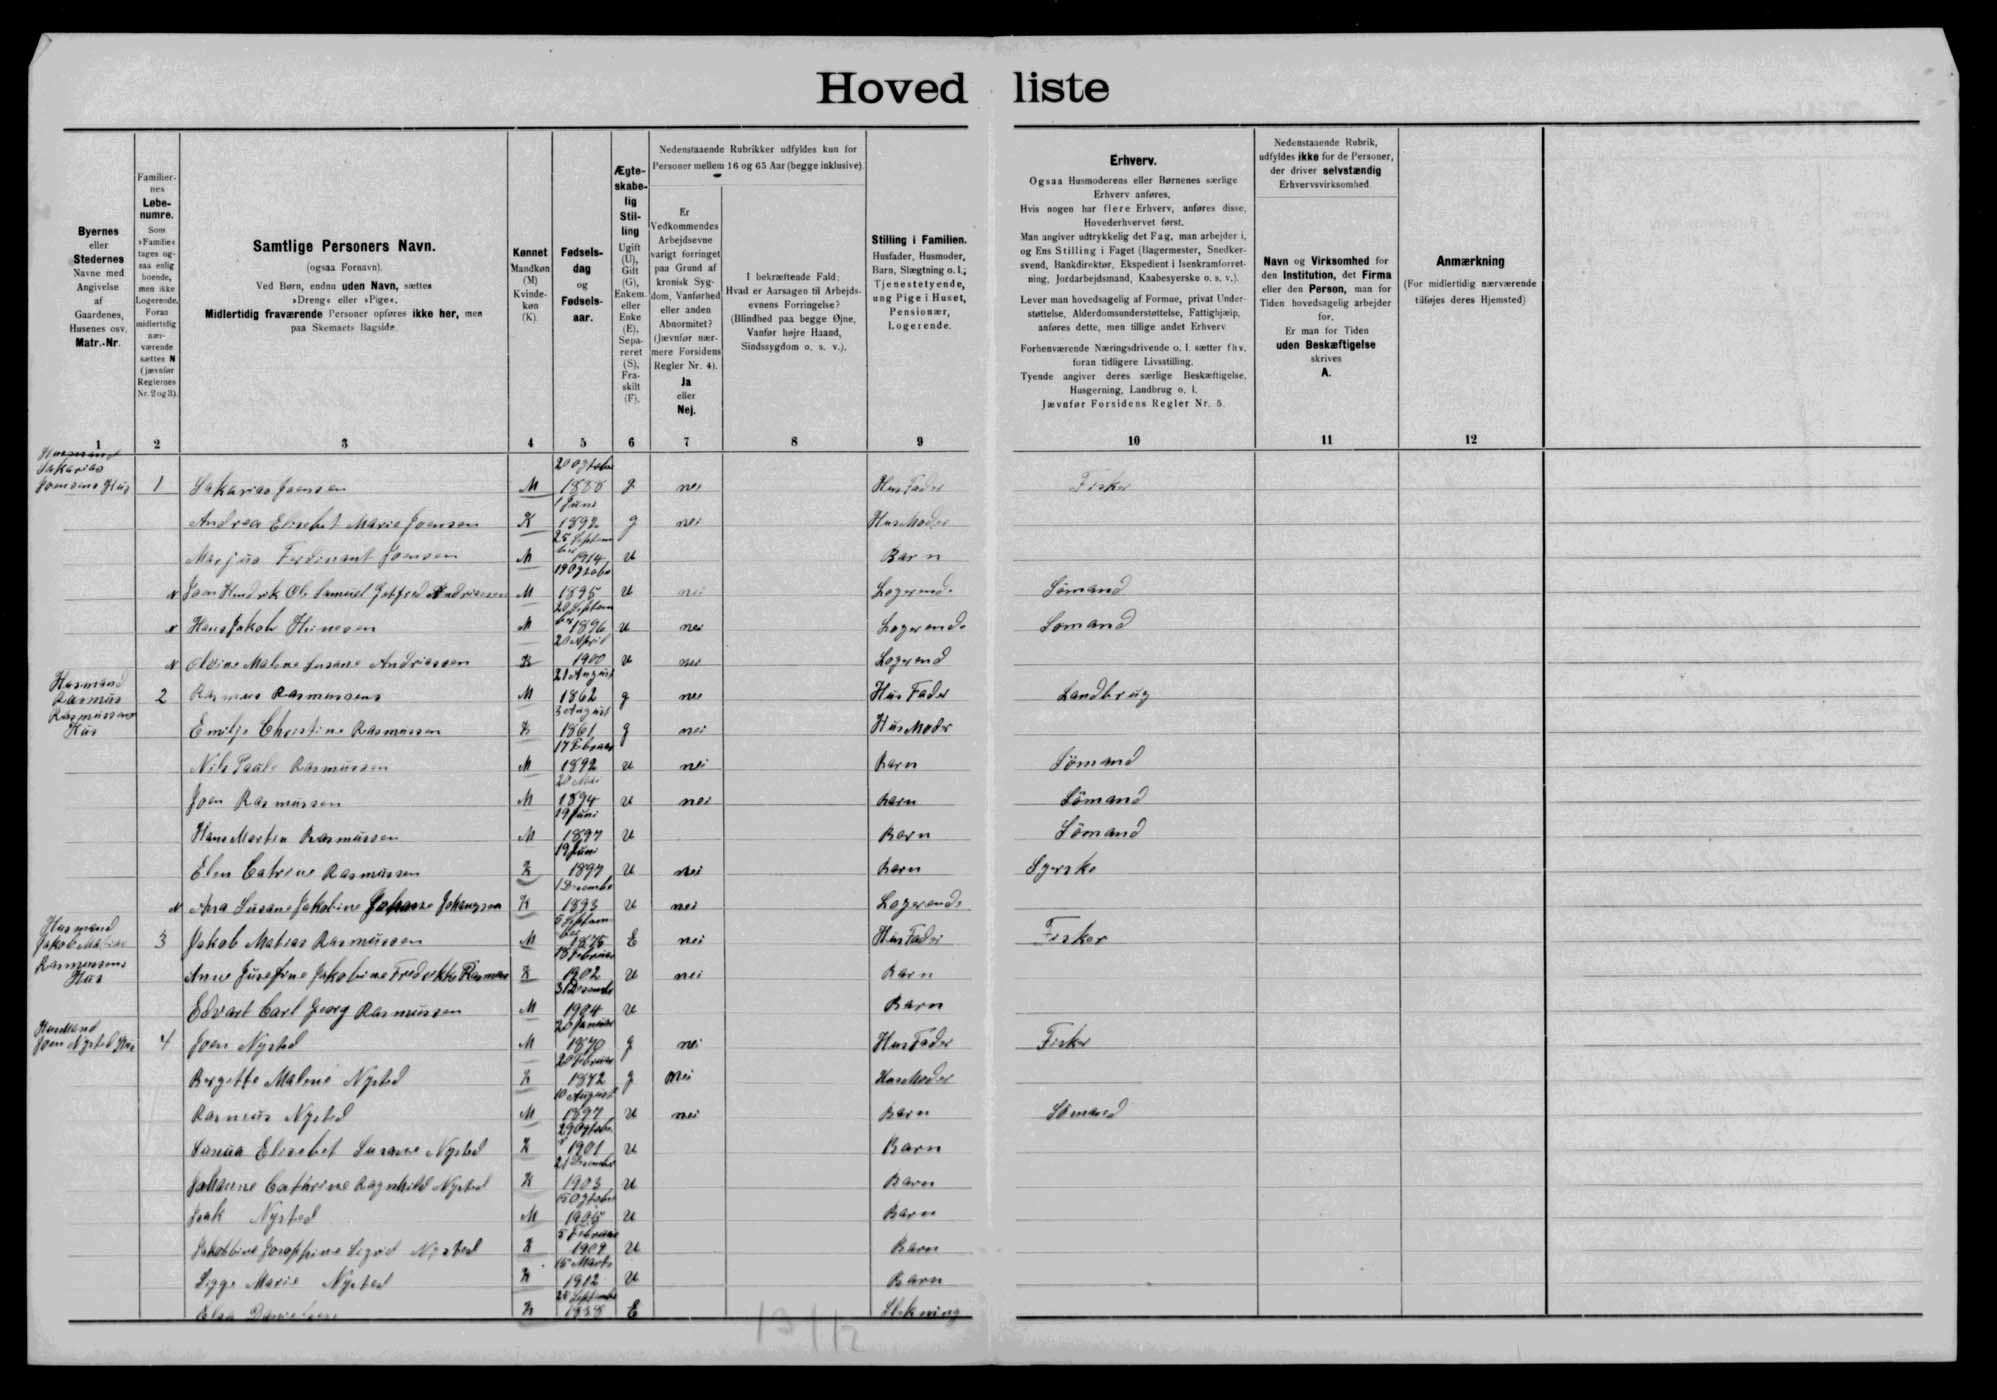 Hovedliste
Nedenstaaende Rubrikker udfyldes kun for
Personer mellem 16 og 65 Aar (begge inklusive).
Byernes
eller
Stedernes
Navne med
Angivelse
af
Gaardenes,
Husenes osv.
Matr.-Nr.
Familier-
nes
Løbe-
numre.
Som
»Familie«
tages og-
saa enlig
boende,
men ikke
Logerende.
Foran
midlertidig
nær-
værende
sættes N
(jævnfør
Reglernes
Nr. 2 og 3).
Samtlige Personers Navn.
(ogsaa Fornavn).
Ved Børn, endnu uden Navn, sættes
»Dreng« eller »Pige«.
Midlertidig fraværende Personer opføres ikke her, men
paa Skemaets Bagside.
Kønnet
Mandkøn
(M)
Kvinde-
køn
(K).
Fødsels-
dag
og
Fødsels-
aar.
Ægte-
skabe-
lig
Stil-
ling
Ugift
(U),
Gift
(G),
Enkem.
eller
Enke
(E),
Sepa-
reret
(S),
Fra-
skilt
(F).
Er
Vedkommendes
Arbejdsevne
varigt forringet
paa Grund af
kronisk Syg-
dom, Vanførhed
eller anden
Abnormitet?
(Jævnfør nær-
mere Forsidens
Regler Nr. 4).
Ja
eller
Nej.
I bekræftende Fald:
Hvad er Aarsagen til Arbejds-
evnens Forringelse?
(Blindhed paa begge Øjne,
Vanfør højre Haand,
Sindssygdom o. s. v.).
Stilling i Familien.
Husfader, Husmoder,
Barn, Slægtning o. l.;
Tjenestetyende,
ung Pige i Huset,
Pensionær,
Logerende.
Erhverv.
Ogsaa Husmoderens eller Børnenes særlige
Erhverv anføres.
Hvis nogen har flere Erhverv, anføres disse,
Hovederhvervet først.
Man angiver udtrykkelig det Fag, man arbejder i,
og Ens Stilling i Faget (Bagermester, Snedker-
svend, Bankdirektør, Ekspedient i Isenkramforret-
ning, Jordarbejdsmand, Kaabesyerske o. s. v.).
Lever man hovedsagelig af Formue, privat Under-
støttelse, Alderdomsunderstøttelse, Fattighjælp,
anføres dette, men tillige andet Erhverv
Forhenværende Næringsdrivende o. l. sætter fhv.
foran tidligere Livsstilling.
Tyende angiver deres særlige Beskæftigelse,
Husgerning, Landbrug o. l.
Jævnfør Forsidens Regler Nr. 5.
Nedenstaaende Rubrik,
udfyldes ikke for de Personer,
der driver selvstændig
Erhvervsvirksomhed.
Navn og Virksomhed for
den Institution, det Firma
eller den Person, man for
Tiden hovedsagelig arbejder
for.
Er man for Tiden
uden Beskæftigelse
skrives
A.
Anmærkning
(For midlertidig nærværende
tilføjes deres Hjemsted)
1 2 3 4 5 6 7 8 9 10 11 12
Husmand
Sakarias
Joensens Hus 1 Sakarias Joensen M 20 Ogtober 1888 g nei HusFader Fisker
Andrea Elisebet Marie Joensen K 1 Juni 1892 g nei HusModer
Marjus Ferdinant Joensen M 25 September 1914 u Barn
N Joen Hendrik Ole Samuel Jotfred Andriasen M 19 Ogtober 1895 u nei Logerende Sømand
N Hans Jakob M 20 September 1896 u nei Logerende Sømand
N Malene Susane Andriassen K 20 April 1900 u nei Logerend
Husmand
Rasmus
Rasmussens
Hus 2 Rasmus Rasmussens M 21 August 1862 g nei Hus Fader Landbrug
Emilje Christine Rasmussen K 3 August 1861 g nei HusModer
Nils Paule Rasmussen M 17 Februar 1892 u nei Barn Sömand
Joen Rasmussen M 20 Mai 1894 u nei Barn Sömand
Hans Martin Rasmussen M 19 Juni 1897 u Barn Sömand
Elen Catrine Rasmussen K 19 Juni 1897 u nei Barn Syerske
N Susane Jakobine K 1 December 1893 u nei Logerende
Husmand
Jakob Matias
Rasmussens
Hus 3 Jakob Matias Rasmussen M 5 September 1875 E nei HusFader Fisker
Anne Jusefine Jakobine Fredrikke Rasmus K 18 Februar 1902 u nei Barn
Edvart Carl Georg Rasmussen M 31 Desember 1904 u Barn
Husmand
Joen Nysted Hus 4 Joen Nysted M 26 Januar 1870 g nei HusFader Fisker
Bergette Malene Nysted K 20 Februar 1872 g Nei HusModer
Rasmus Nysted M 10 August 1897 u nei Barn Sömand
Sanna Elisebet Susanne Nysted K 29 Ogtober 1901 u Barn
Johanne Cathrine Ragnhild Nysted K 21 December 1903 u Barn
Isak Nysted M Ogtober u Barn
Jakobine Josephine Sigrid Nysted K 5 Februar 1909 u Barn
Sigge Marie Nysted K 15 Marts 1912 u Barn
Elsa Danielsen K 25 September 1838 E Slekning